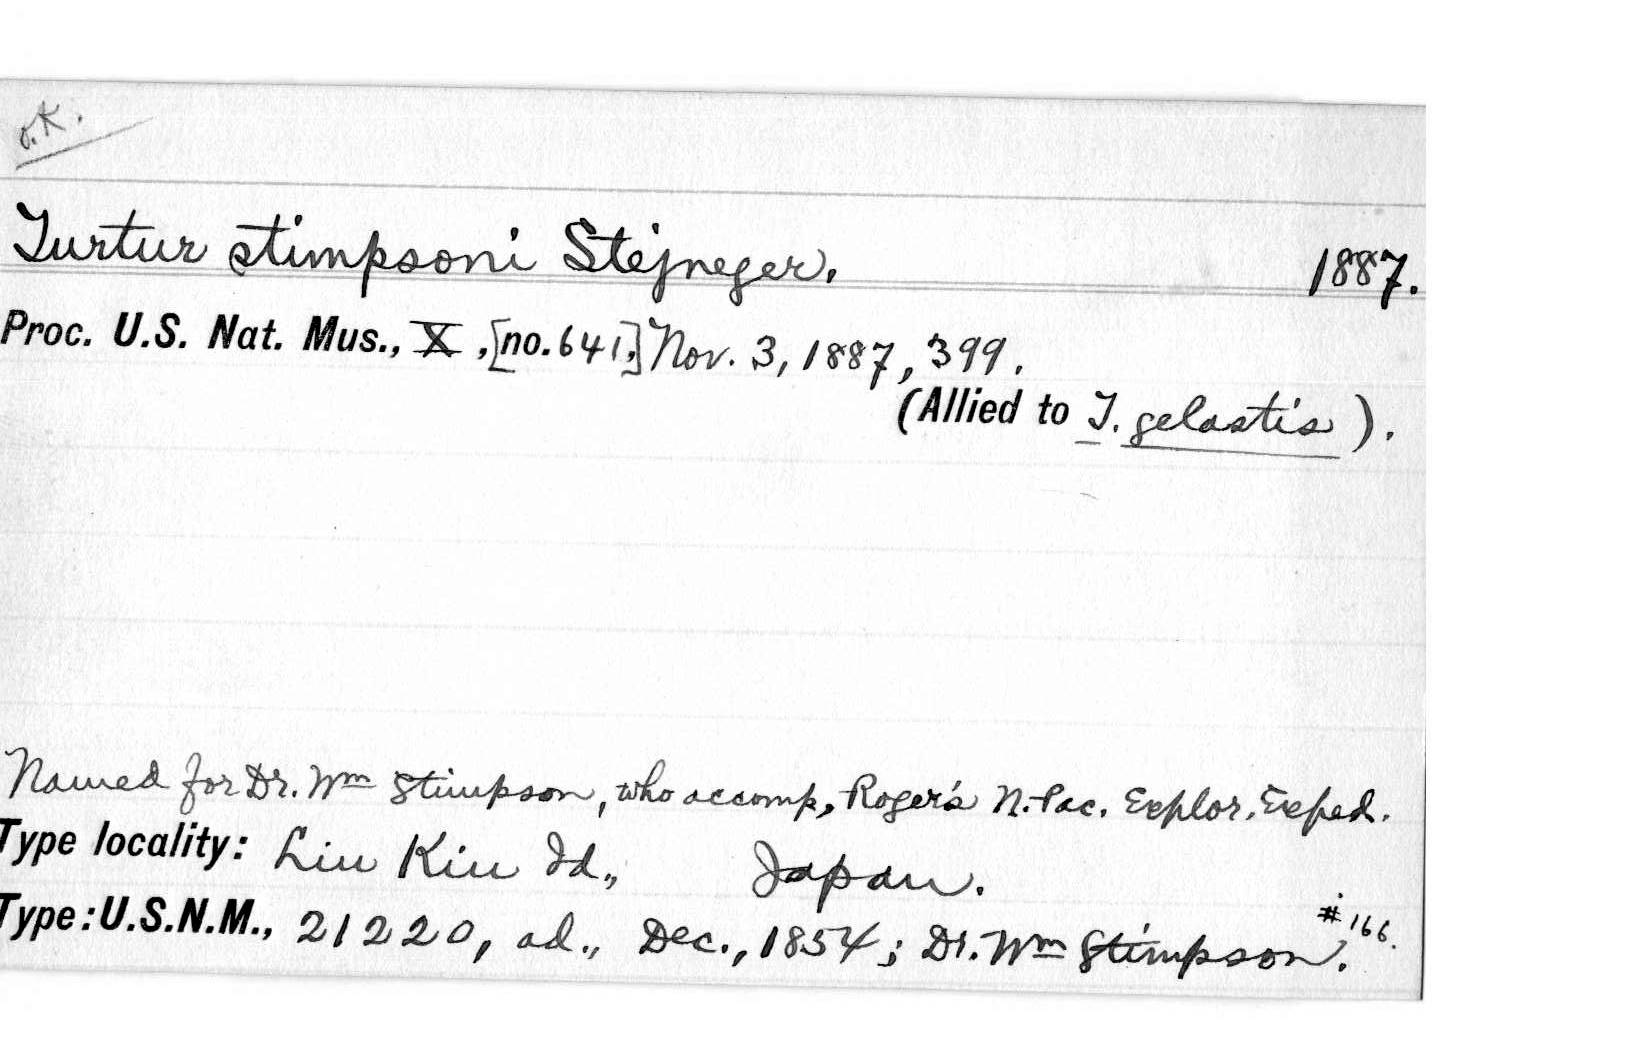 o.K.
Turtur stimpsoni Stejneger, 1887.
Proc. U.S. Nat. Mus., X, [no. 641,] Nov. 3, 1887, 399.
(Allied to T. gelastis).
Named for Dr. Wm Stimpson, who accomp, Roger's N. Pac. Explor. Exped.
Type locality: Liu Kiu Id., Japan.
Type: U.S.N.M., 21220, ad., Dec., 1854; Dr. Wm Stimpson. #166.